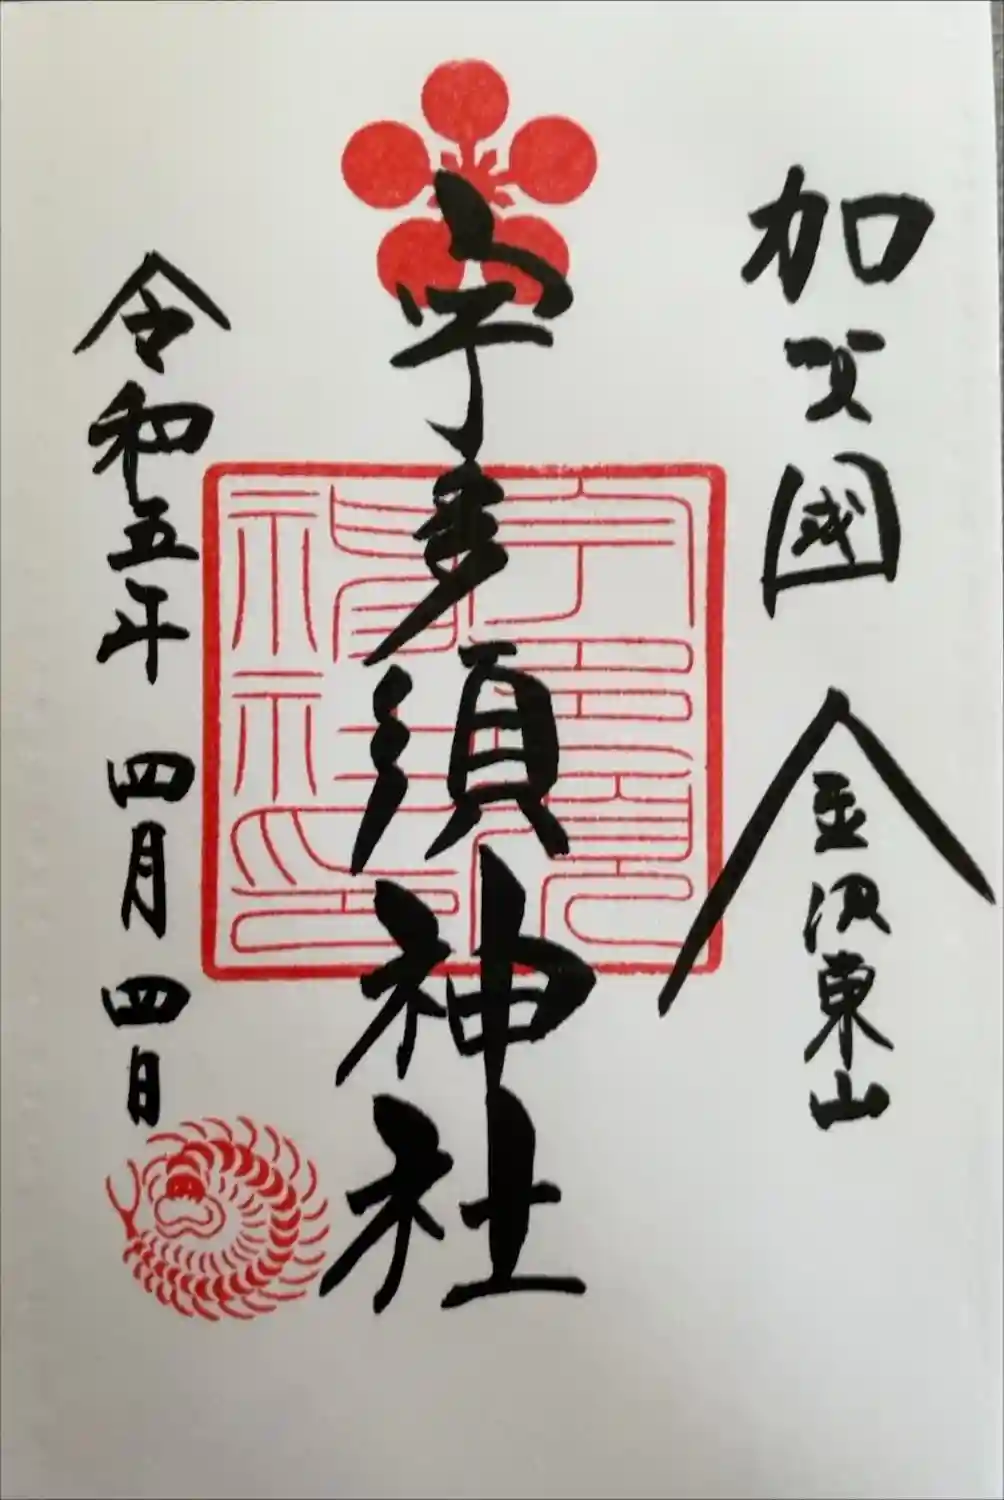 加賀國 金沢東山
宇多須神社
令和五年 四月 四日